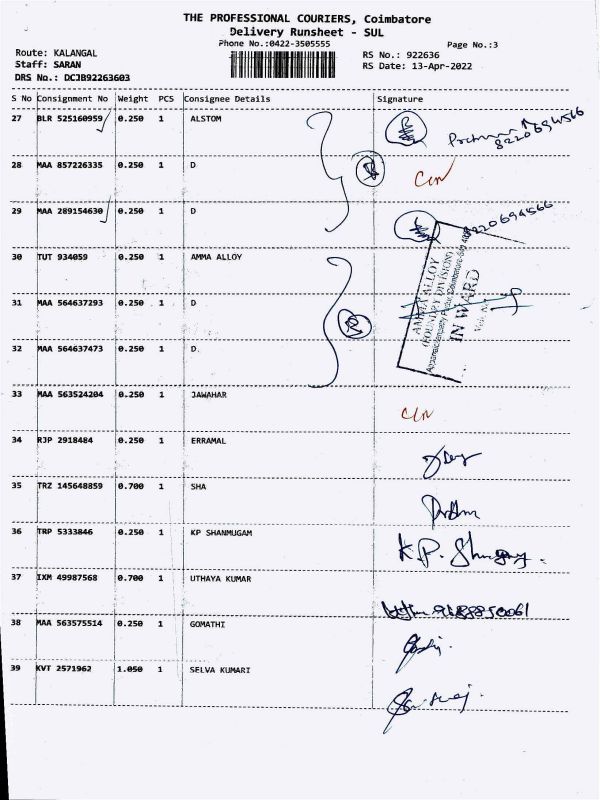 THE PROFESSIONAL COURIERS, Coimbatore
Delivery Runsheet - SUL
Phone No.:0422-3505555
Page No.:3
Route: KALANGAL
RS No.: 922636
Staff: SARAN
RS Date: 13-Apr-2022
DRS No.: DCJB92263603
S No Consignment No Weight PCS Consignee Details Signature
27 BLR 525160959 0.250 1 ALSTOM
8220694566
28 MAA 857226335 0.250 1 D
29 MAA 289154630 0.250 1 D
8220694566
30 TUT 934059 0.250 1 AMMA ALLOY
31 MAA 564637293 0.250 1 D
AMMA ALLOY
(FOUNDRY DIVISION)
IN WARD
32 MAA 564637473 0.250 1 D.
33 MAA 563524204 0.250 1 JAWAHAR
34 RJP 2918484 0.250 1 ERRAMAL
35 TRZ 145648859 0.700 1 SHA
36 TRP 5333846 0.250 1 KP SHANMUGAM
K.P.
37 IXM 49987568 0.700 1 UTHAYA KUMAR
38 MAA 563575514 0.250 1 GOMATHI
39 KVT 2571962 1.050 1 SELVA KUMARI